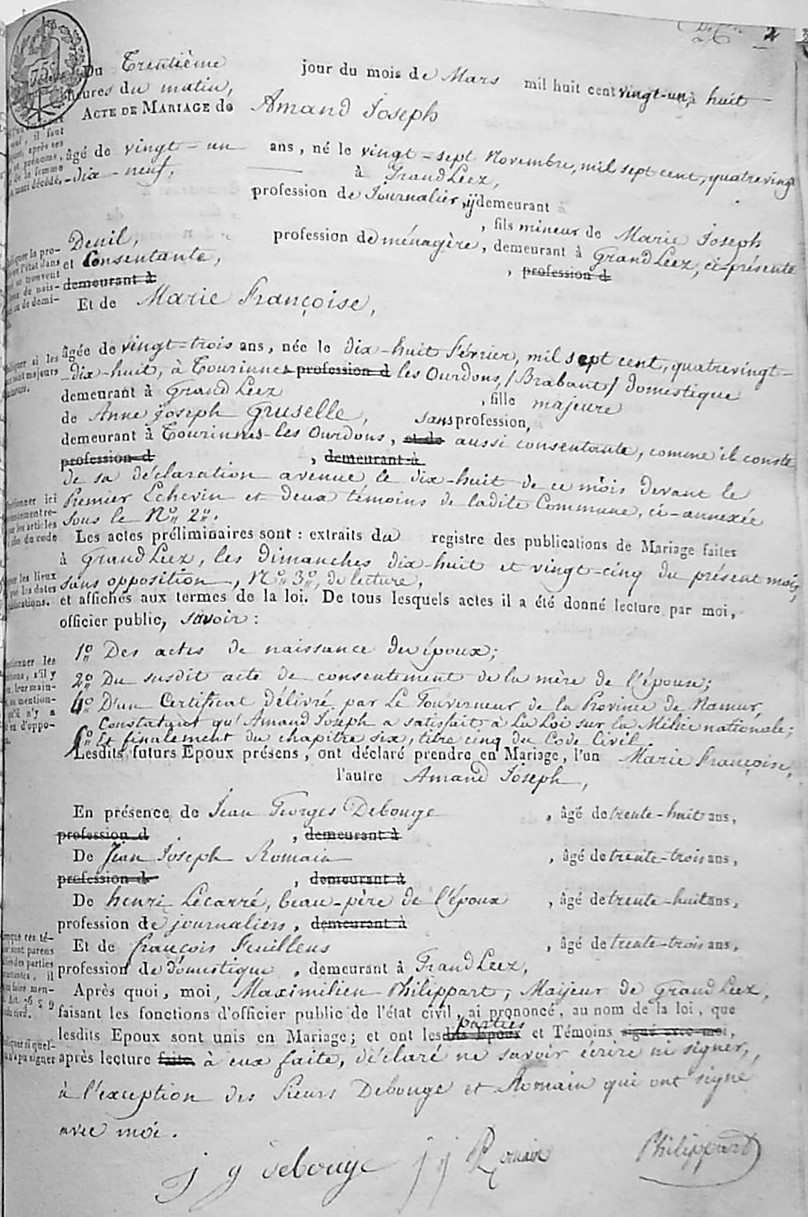 2
75
Du Trentième jour du mois de Mars mil huit cent vingt-un, à huit
heures du matin,
ACTE DE MARIAGE de Amand Joseph
âgé de vingt-un ans, né le vingt-sept Novembre, mil sept cent, quatrevingt
-dix-neuf, à GrandLeez,
profession de Journalier, y demeurant
, fils mineur de Marie Joseph
Denil, profession de ménagère, demeurant à GrandLeez, ci-présente
et Consentante, , profession d
demeurant à
Et de Marie Françoise,
âgée de vingt-trois ans, née le dix-huit Février, mil sept cent, quatrevingt-
-dix-huit, à Tourinnes profession d les Ourdons, /Brabant/ domestique
demeurant à GrandLeez , fille majeure
de Anne joseph Gruselle, sans profession,
demeurant à Tourinnes-les Ourdons, et de aussi consentante, comme il conste
profession d , demeurant à
de sa déclaration avenue, le dix-huit de ce mois devant le
Premier Echevin et deux témoins de ladite Commune, ci-annexée
sous le No 2o.
Les actes préliminaires sont : extraits du registre des publications de Mariage faites
à GrandLeez, les dimanches dix-huit et vingt-cinq du présent mois,
sans opposition, No 3o, de lecture,
et affichés aux termes de la loi. De tous lesquels actes il a été donné lecture par moi,
officier public, savoir :
1o Des actes de naissance des époux;
2o Du susdit acte de consentement de la mère de l'épouse;
4o D'un Certificat délivré par Le Gouverneur de la Province de Namur,
Constatant qu'Amand Joseph a satisfait à La Loi sur la Milice nationale;
5o Et finalement du chapitre six, titre cinq du Code Civil.
Lesdits futurs Epoux présens, ont déclaré prendre en Mariage, l'un Marie Françoise,
l'autre Amand Joseph,
En présence de Jean Georges Debouge , âgé de trente-huit ans,
profession d , demeurant à
De Jean Joseph Romain , âgé de trente-trois ans,
profession de , demeurant à
De henri Lecarré, beau-père de l'époux , âgé de trente-huit ans,
profession de journaliers, demeurant à
Et de françois Feuillens , âgé de trente-trois ans,
profession de domestique , demeurant à GrandLeez,
Après quoi, moi, Maximilien Philippart, Majeur de GrandLeez,
faisant les fonctions d'officier public de l'état civil, ai prononcé, au nom de la loi, que
parties
lesdits Epoux sont unis en Mariage; et ont lesdits Epoux et Témoins signé avec moi,
après lecture faite à eux faite, déclaré ne savoir écrire ni signer,
à l'exception des Sieurs Debouge et Romain qui ont signé
avec moi.
j g debouge j j Romain Philippart